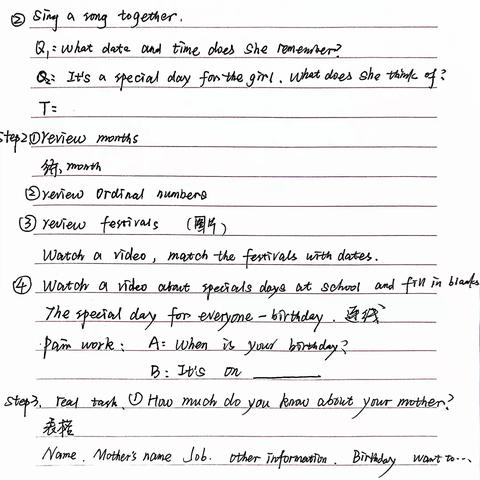 ② Sing a song together.
Q₁: what date and time does she remember?
Q₂: It's a special day for the girl. What does she think of?
T:
Step2 ① review months
month
② review Ordinal numbers
③ review festivals (图片)
Watch a video, match the festivals with dates.
④ Watch a video about specials days at school and fill in blanks
The special day for everyone - birthday.
pain work: A: When is your birthday?
B: It's on ______
Step3. real task. ① How much do you know about your mother?
表格
Name. Mother's name Job. other information. Birthday want to...